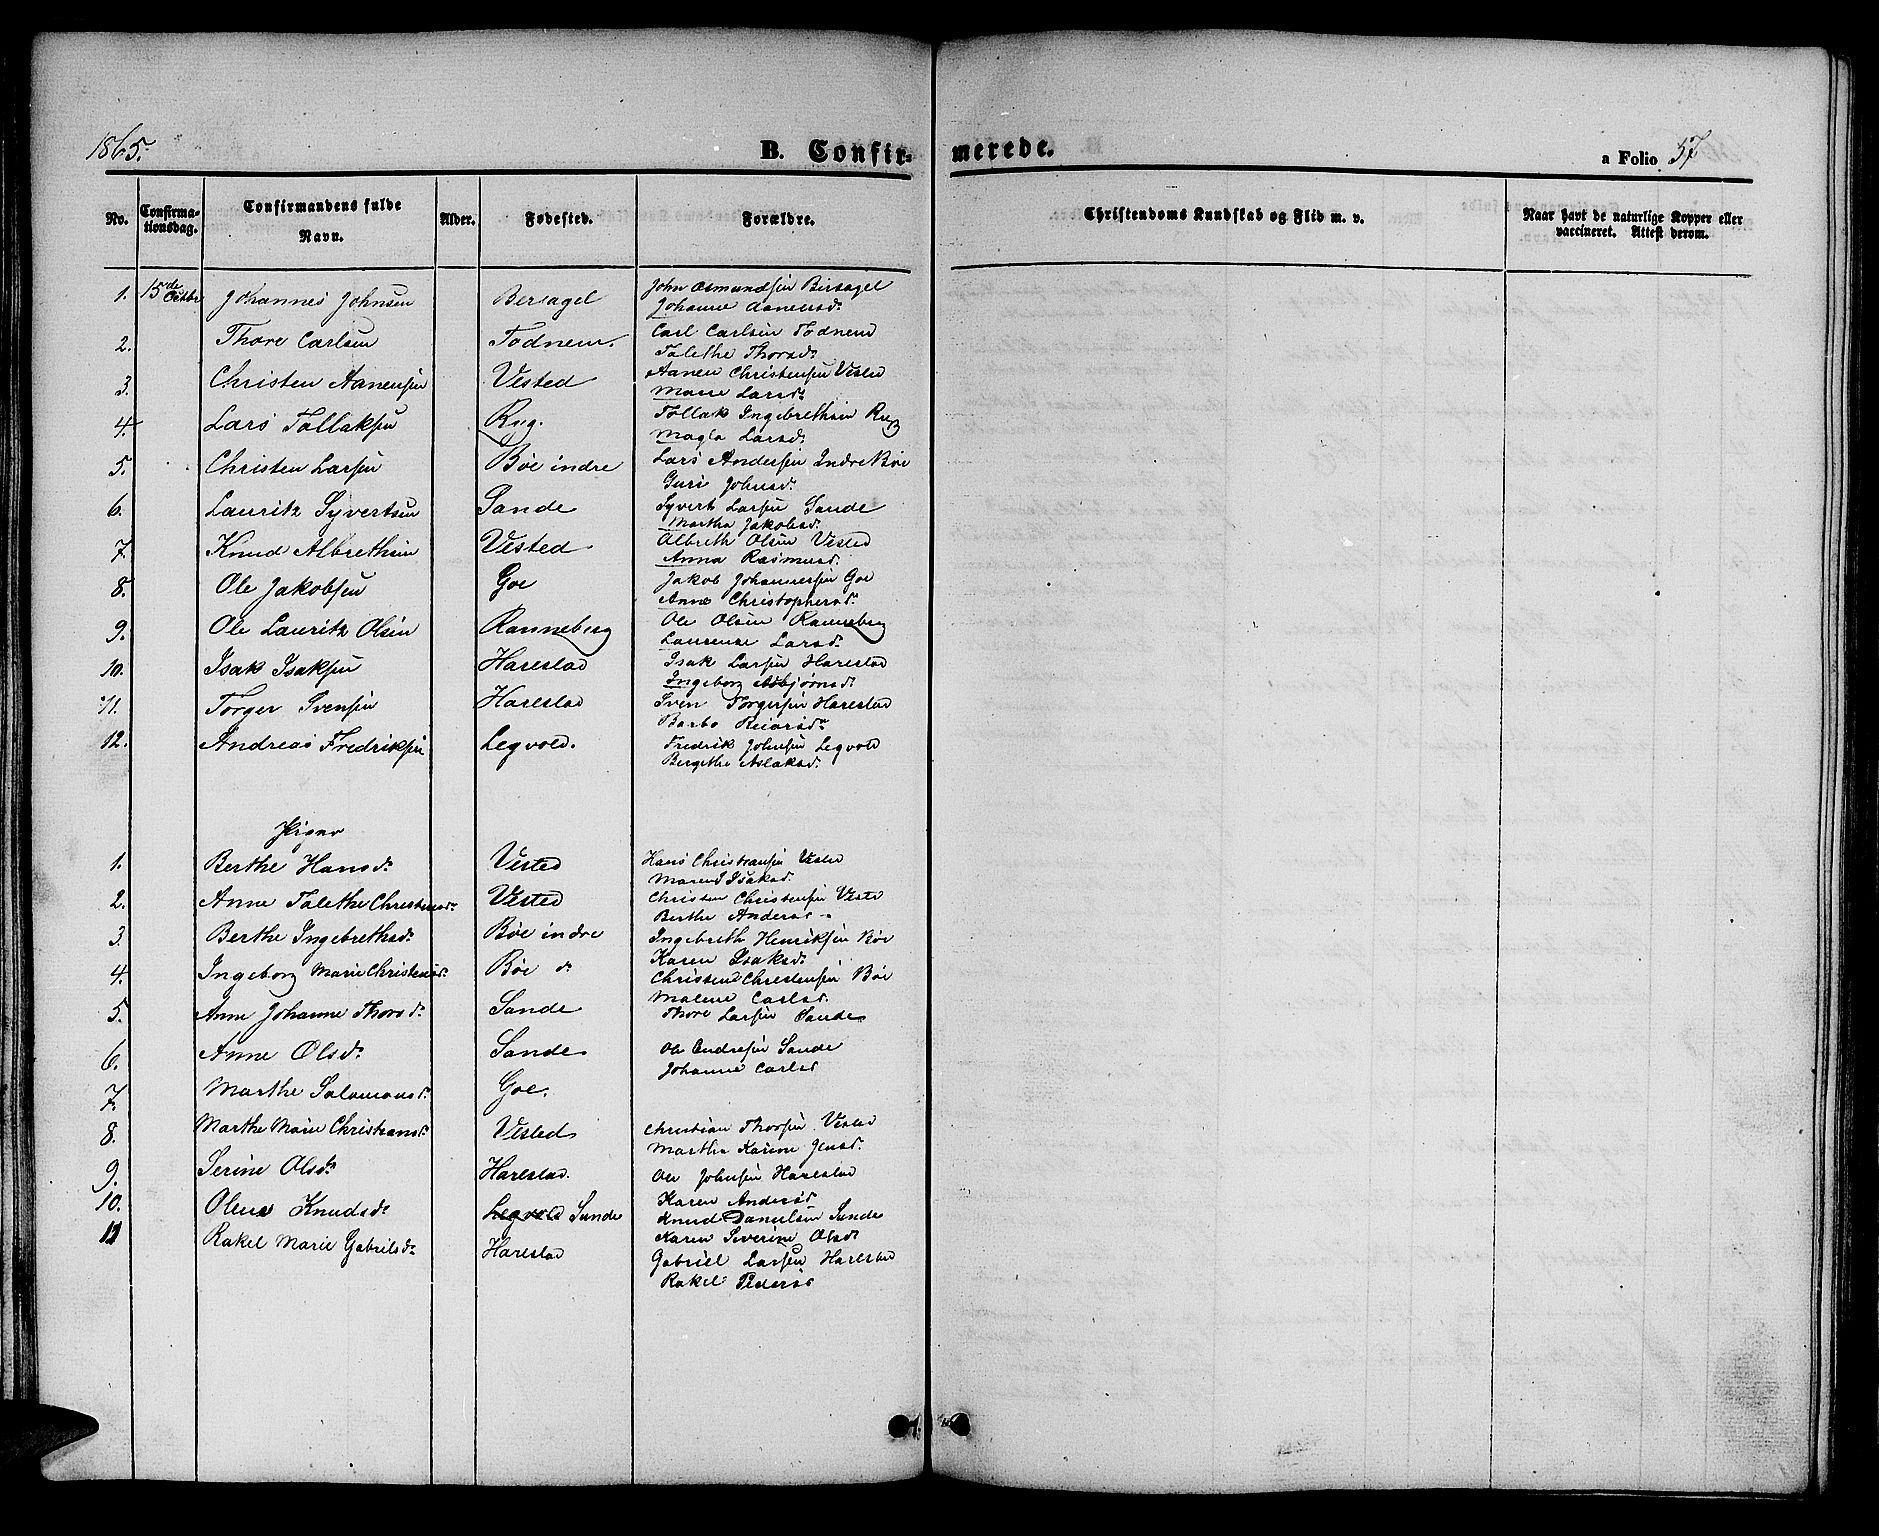 1865.
B. Confirmerede.
a Folio 57
No.
Confirmationsdag.
Confirmandens fulde Navn.
Alder.
Fødested.
Forældre.
Christendoms Kundskab og Flid m. v.
Naar havt de naturlige Kopper eller vaccineret. Attest derom.
1. 15de Octbr Johannes Johnsen Bersagel John Osmundsen Birsagel
Johanne Aanensd.
2. Thore Carlsen Todnem. Carl Carlsen Todnem
Talethe Thorsd.
3. Christen Aanensen Vested Aanen Christensen Vested
Marie Larsd.
4. Lars Tollaksen Rug. Tollak Ingebrethsen Rug
Magla Larsd.
5. Christen Larsen Bøe indre Lars Andersen Indre Bøe
Guri Johnsd.
6. Lauritz Syvertsen Sande Syvert Larsen Sande
Martha Jakobsd.
7. Knud Albrethsen Vested Albreth Olsen Vested
Anna Rasmusd.
8. Ole Jakobsen Goe Jakob Johannessen Goe
Anne Christophersd.
9. Ole Lauritz Olsen Ranneberg Ole Olsen Ranneberg
Laurense Larsd.
10. Isak Isaksen Harestad Isak Larsen Harestad
Ingeborg Asbjørnsd.
11. Torger Svensen Harestad Sven Torgersen Harestad
Barbo Reiarsd.
12. Andreas Fredriksen Legvold. Fredrik Johnsen Legvold
Bergithe Aslaksd.
Piger
1. Berthe Hansd. Vested Hans Christiansen Vested
Maren Isaksd.
2. Anne Talethe Christensd. Vested Christen Christensen Vested
Berthe Andersd
3. Berthe Ingebrethsd. Bøe indre Ingebreth Henriksen Bøe
Karen Isaksd.
4. Ingeborg Marie Christensd. Bøe d. Christen Christensen Bøe
Malene Carlsd.
5. Anne Johanne Thorsd. Sande Thore Larsen Sande
6. Anne Olsd. Sande Ole Endresen Sande
Johanne Carlsd
7. Marthe Salamonsd. Goe.
8. Marthe Marie Christiansd. Vested Christian Thorsen Vested
Martha Karine Jensd.
9. Serine Olsd. Harestad. Ole Johnsen Harestad
Karen Andersd
10. Olene Knudsd. Legvold Sunde Knud Danielsen Sunde
Karen Severine Olsd
11 Rakel Marie Gabrielsd. Harestad Gabriel Larsen Harestad
Rakel Pedersd